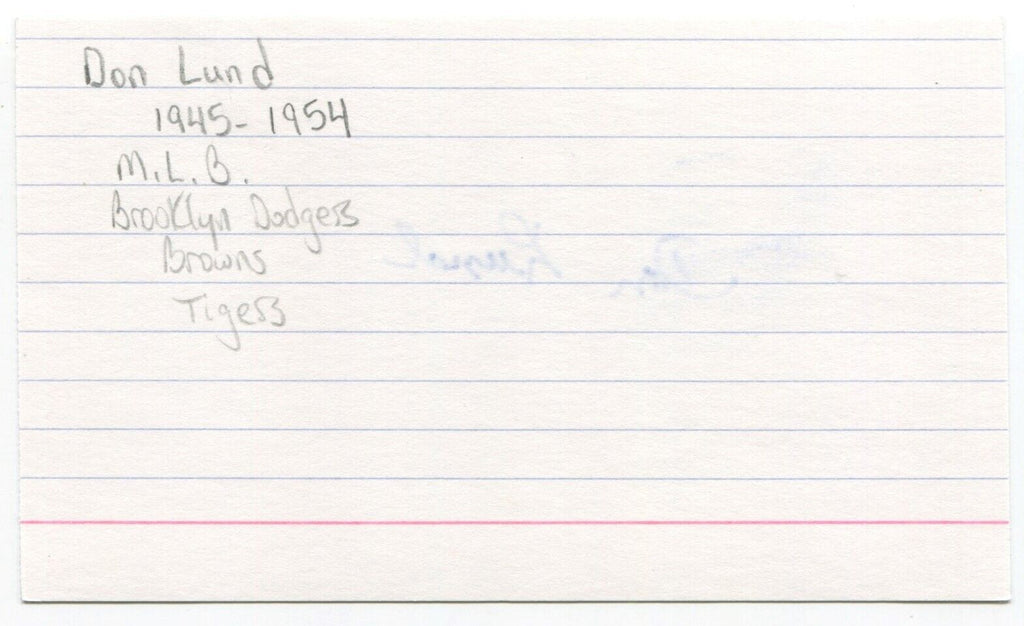 Don Lund
1945-1954
M.L.B.
Brooklyn Dodgers
Browns
Tigers